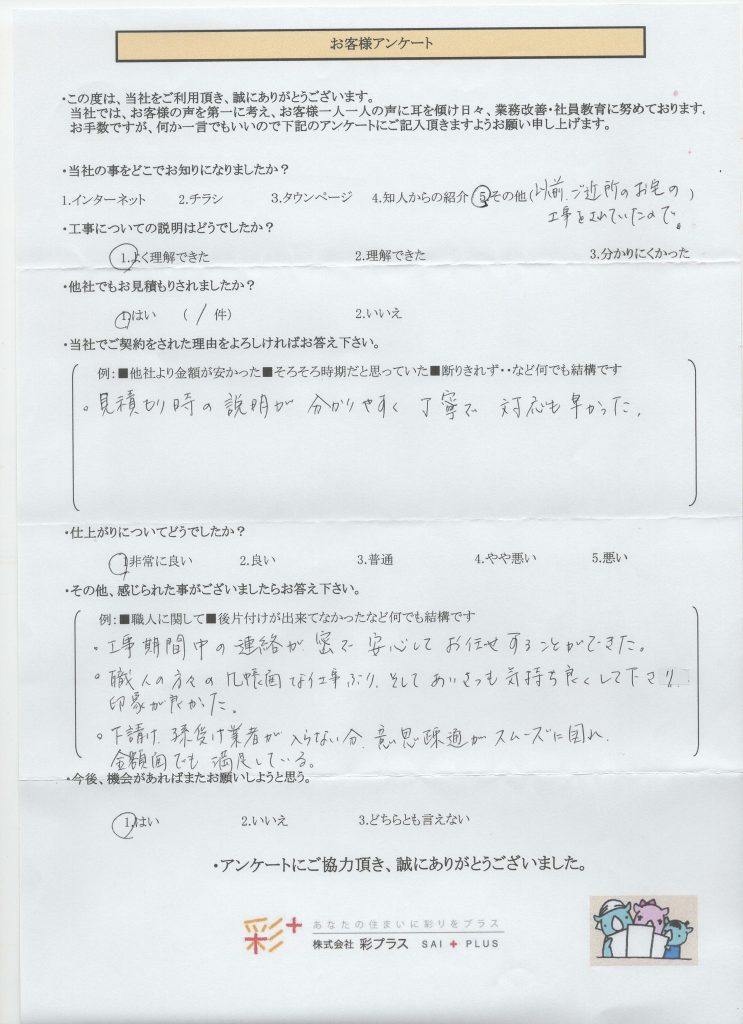 お客様アンケート
・この度は、当社をご利用頂き、誠にありがとうございます。
当社では、お客様の声を第一に考え、お客様一人一人の声に耳を傾け日々、業務改善・社員教育に努めております。
お手数ですが、何か一言でもいいので下記のアンケートにご記入頂きますようお願い申し上げます。
・当社の事をどこでお知りになりましたか？
1.インターネット 2.チラシ 3.タウンページ 4.知人からの紹介 5.その他(以前、ご近所のお宅の
工事をされていたので。)
・工事についての説明はどうでしたか？
1.よく理解できた 2.理解できた 3.分かりにくかった
・他社でもお見積もりされましたか？
1.はい ( / 件) 2.いいえ
・当社でご契約をされた理由をよろしければお答え下さい。
例：■他社より金額が安かった■そろそろ時期だと思っていた■断りきれず・・など何でも結構です
。見積もり時の説明が 分かりやすく 丁寧で 対応も早かった。
・仕上がりについてどうでしたか？
1.非常に良い 2.良い 3.普通 4.やや悪い 5.悪い
・その他、感じられた事がございましたらお答え下さい。
例：■職人に関して■後片付けが出来てなかったなど何でも結構です
・工事期間中の連絡が密で 安心してお任せすることができた。
・職人の方々の几帳面な仕事ぶり、そしてあいさつも気持ち良くして下さり、
印象が良かた。
。下請け、孫受け業者が入らない分、意思疎通がスムーズに図れ、
金額面でも満足している。
・今後、機会があればまたお願いしようと思う。
1.はい 2.いいえ 3.どちらとも言えない
・アンケートにご協力頂き、誠にありがとうございました。
彩+ あなたの住まいに彩りをプラス
株式会社 彩プラス SAI + PLUS